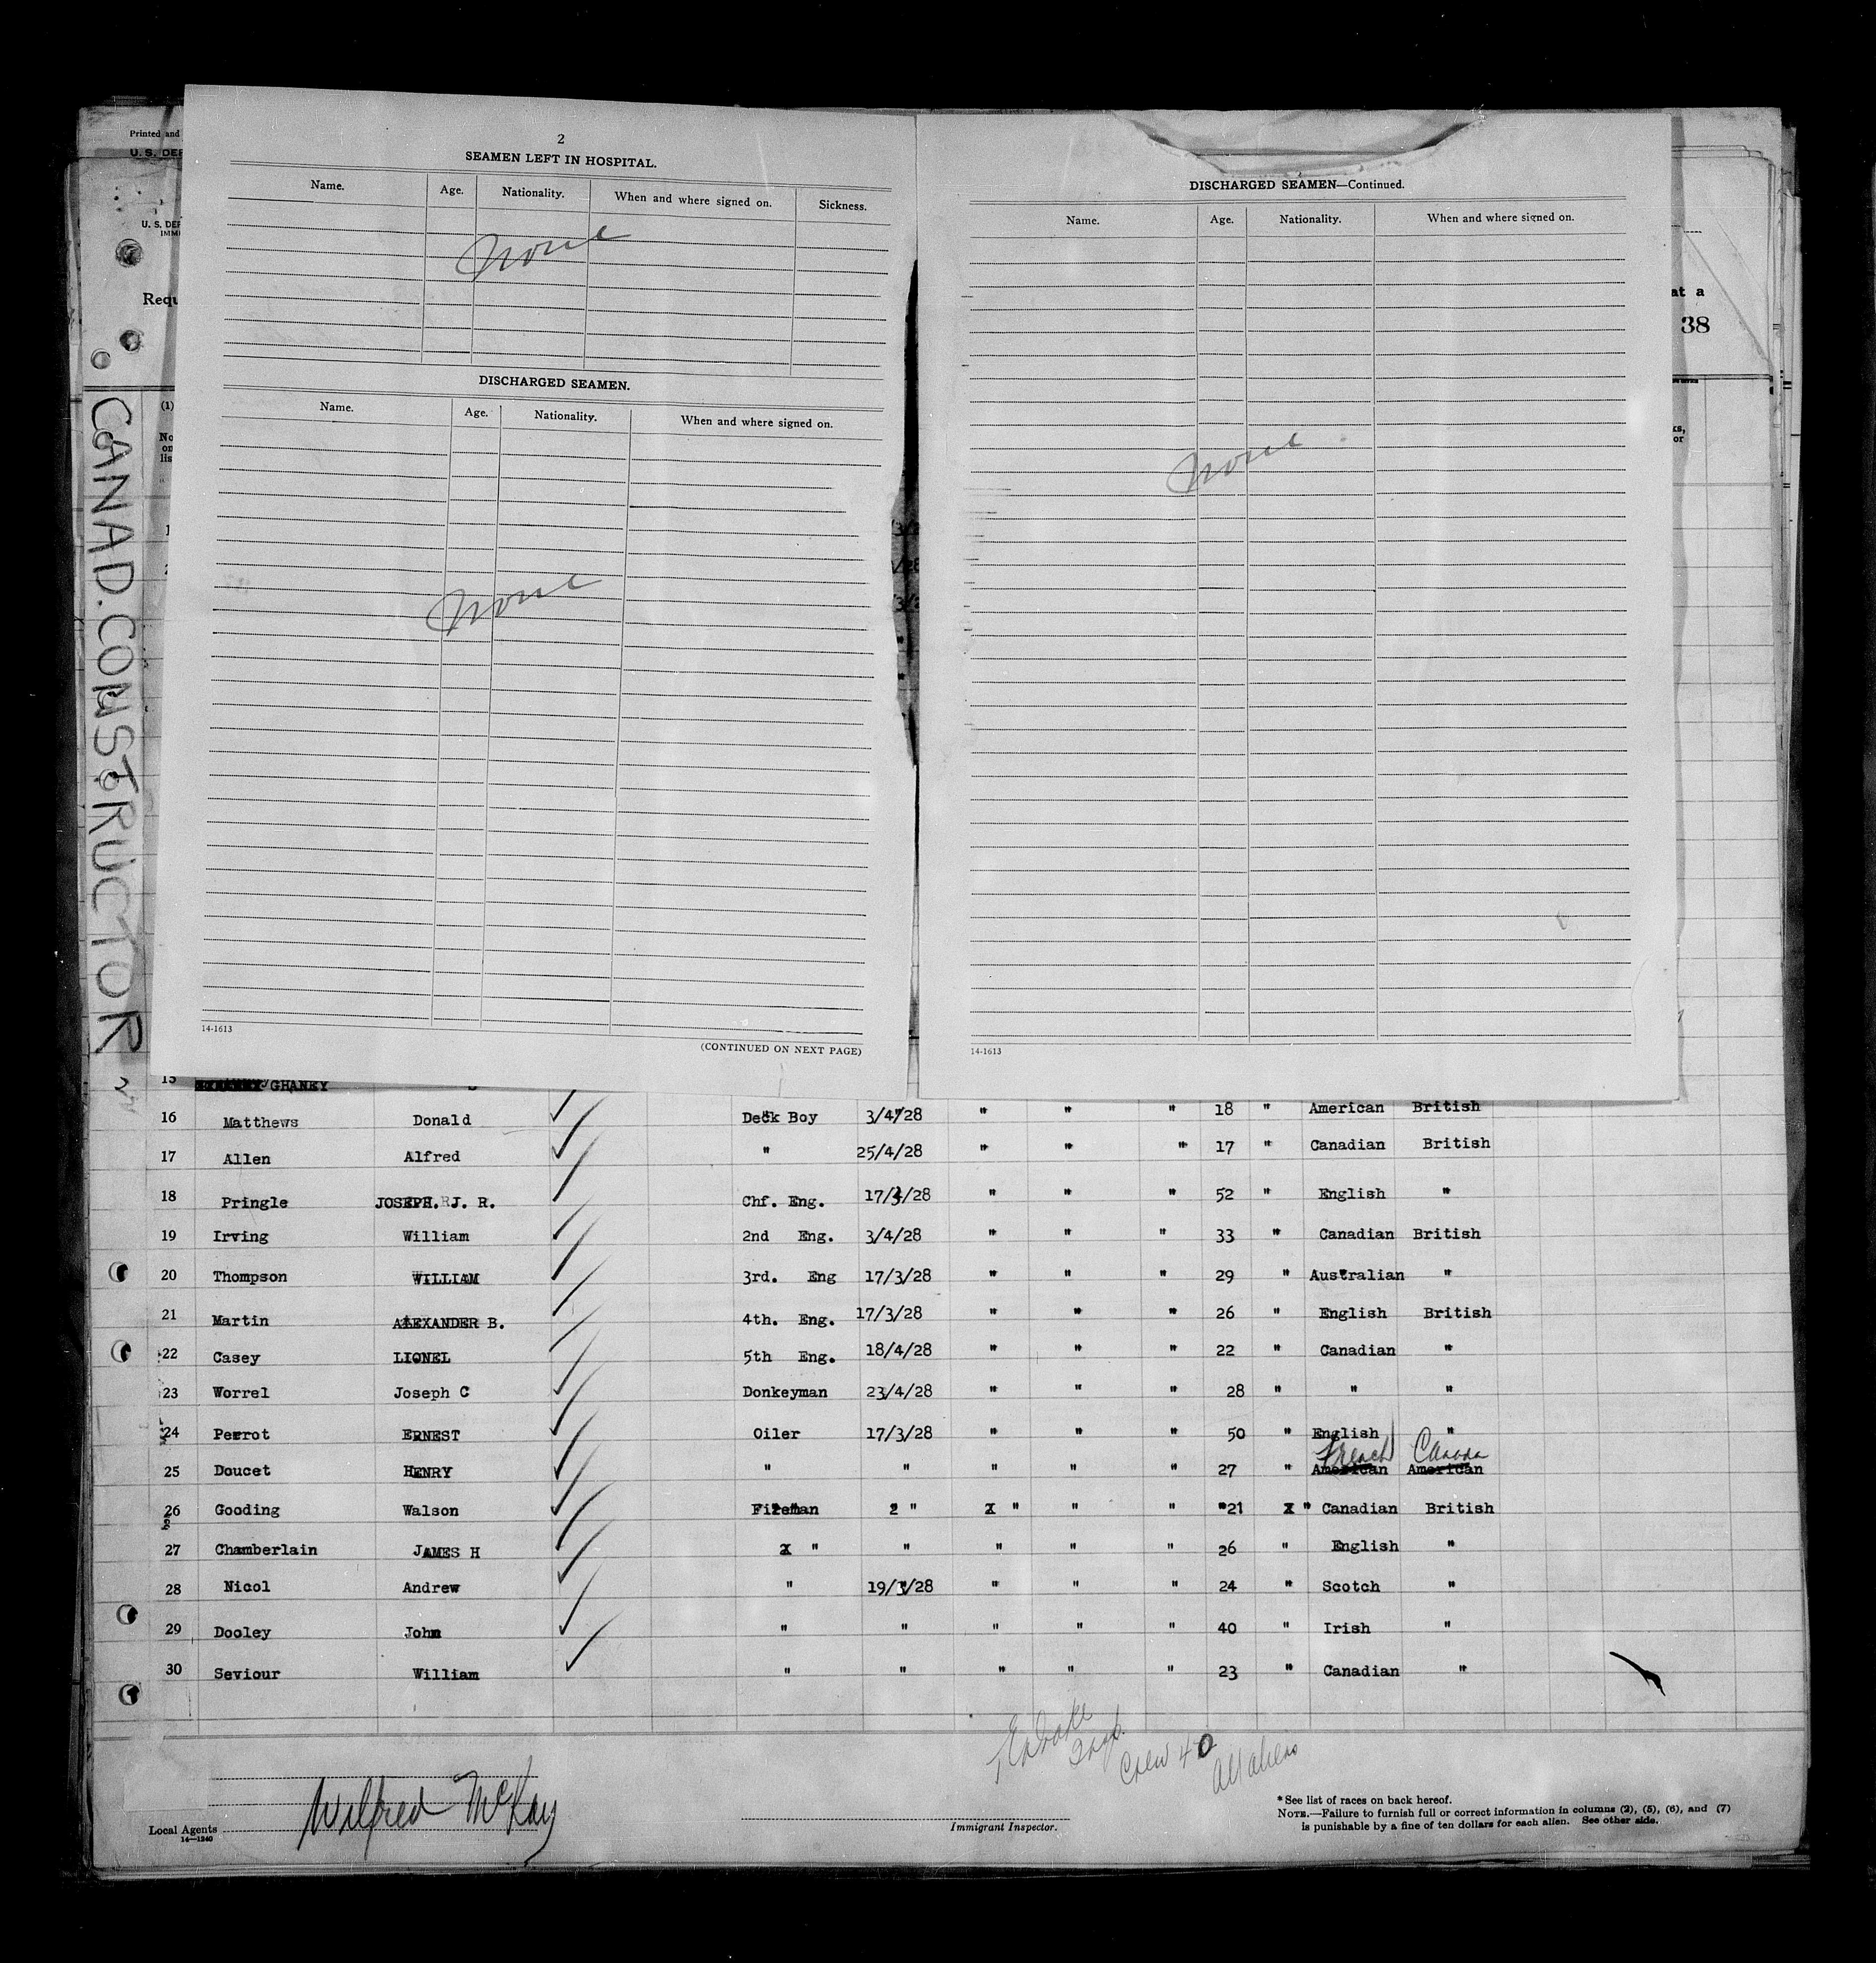 Printed and
U. S. DEP
U. S. DEP
IMMI
Requ
(1)
No
on
lis
CANAD. CONSTRUCTOR
2
SEAMEN LEFT IN HOSPITAL.
Name. Age. Nationality. When and where signed on. Sickness.
None
DISCHARGED SEAMEN.
Name. Age. Nationality. When and where signed on.
None
14-1613
(CONTINUED ON NEXT PAGE)
DISCHARGED SEAMEN—Continued.
Name. Age. Nationality. When and where signed on.
None
14-1613
at a
38
ks,
or
15 GHANEY
16 Matthews Donald Deck Boy 3/4/28 " " " 18 " American British
17 Allen Alfred " 25/4/28 " " " 17 " Canadian British
18 Pringle JOSEPH. J. R. Chf. Eng. 17/4/28 " " " 52 " English "
19 Irving William 2nd Eng. 3/4/28 " " " 33 " Canadian British
20 Thompson WILLIAM 3rd. Eng 17/3/28 " " " 29 " Australian "
21 Martin ALEXANDER B. 4th. Eng. 17/3/28 " " " 26 " English British
22 Casey LIONEL 5th Eng. 18/4/28 " " " 22 " Canadian "
23 Worrel Joseph C Donkeyman 23/4/28 " " " 28 " " "
24 Perrot ERNEST Oiler 17/3/28 " " " 50 " English "
French Canada
25 Doucet HENRY " " " " " 27 " American American
26 Gooding Walson Fireman " " " " 21 " Canadian British
27 Chamberlain JAMES H " " " " " 26 " English "
28 Nicol Andrew " 19/3/28 " " " 24 " Scotch "
29 Dooley John " " " " " 40 " Irish "
30 Seviour William " " " " " 23 " Canadian "
Insp.
Crew 40
All aliens
Wilfred McKay
Local Agents
14—1240
Immigrant Inspector.
* See list of races on back hereof.
NOTE.—Failure to furnish full or correct information in columns (2), (5), (6), and (7)
is punishable by a fine of ten dollars for each alien. See other side.